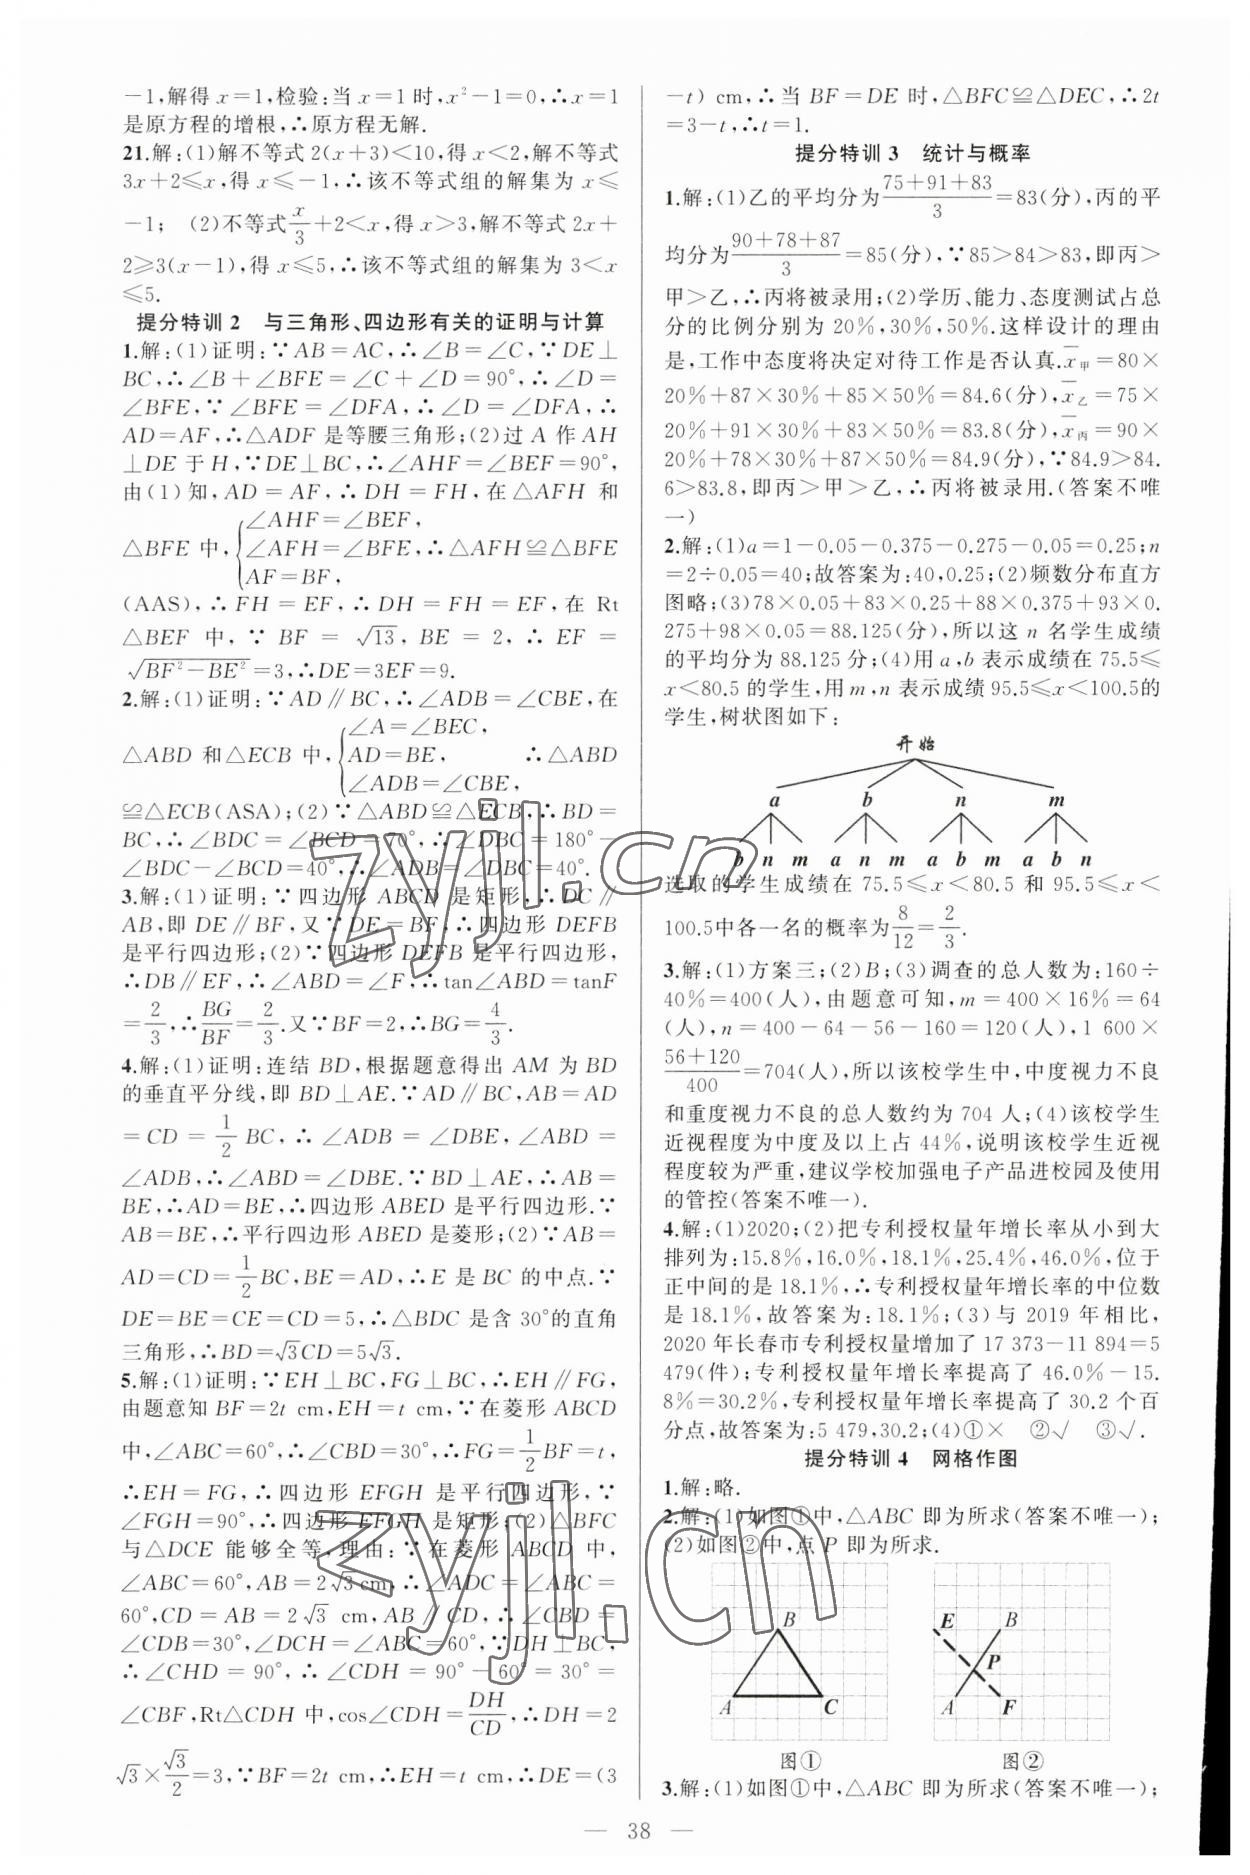 -1,解得 x=1,检验:当 x=1 时,x²-1=0,∴x=1
是原方程的增根,∴原方程无解.
21.解:(1)解不等式 2(x+3)<10,得 x<2,解不等式
3x+2≤x,得 x≤-1,∴该不等式组的解集为 x≤
-1; (2)不等式x/3+2<x,得 x>3,解不等式 2x+
2≥3(x-1),得 x≤5,∴该不等式组的解集为 3<x
≤5.
提分特训 2 与三角形、四边形有关的证明与计算
1.解:(1)证明:∵AB=AC,∴∠B=∠C,∵DE⊥
BC,∴∠B+∠BFE=∠C+∠D=90°,∴∠D=
∠BFE,∵∠BFE=∠DFA,∴∠D=∠DFA,∴
AD=AF,∴△ADF 是等腰三角形;(2)过 A 作 AH
⊥DE 于 H,∵DE⊥BC,∴∠AHF=∠BEF=90°,
由(1)知,AD=AF,∴DH=FH,在△AFH 和
△BFE 中,{∠AHF=∠BEF,
∠AFH=∠BFE,∴△AFH≌△BFE
AF=BF,
(AAS),∴FH=EF,∴DH=FH=EF,在 Rt
△BEF 中,∵BF=√13,BE=2,∴EF=
√(BF²-BE²)=3,∴DE=3EF=9.
2.解:(1)证明:∵AD∥BC,∴∠ADB=∠CBE,在
△ABD 和△ECB 中,{∠A=∠BEC,
AD=BE, ∴△ABD
∠ADB=∠CBE,
≌△ECB(ASA);(2)∵△ABD≌△ECB,∴BD=
BC,∴∠BDC=∠BCD=70°,∴∠DBC=180°-
∠BDC-∠BCD=40°,∴∠ADB=∠DBC=40°.
3.解:(1)证明:∵四边形 ABCD 是矩形,∴DC∥
AB,即 DE∥BF,又∵DE=BF,∴四边形 DEFB
是平行四边形;(2)∵四边形 DEFB 是平行四边形,
∴DB∥EF,∴∠ABD=∠F,∴tan∠ABD=tanF
=2/3,∴BG/BF=2/3.又∵BF=2,∴BG=4/3.
4.解:(1)证明:连结 BD,根据题意得出 AM 为 BD
的垂直平分线,即 BD⊥AE.∵AD∥BC,AB=AD
=CD=1/2 BC,∴∠ADB=∠DBE,∠ABD=
∠ADB,∴∠ABD=∠DBE.∵BD⊥AE,∴AB=
BE,∴AD=BE,∴四边形 ABED 是平行四边形.∵
AB=BE,∴平行四边形 ABED 是菱形;(2)∵AB=
AD=CD=1/2BC,BE=AD,∴E 是 BC 的中点.∵
DE=BE=CE=CD=5,∴△BDC 是含 30°的直角
三角形,∴BD=√3CD=5√3.
5.解:(1)证明:∵EH⊥BC,FG⊥BC,∴EH∥FG,
由题意知 BF=2t cm,EH=t cm,∵在菱形 ABCD
中,∠ABC=60°,∴∠CBD=30°,∴FG=1/2BF=t,
∴EH=FG,∴四边形 EFGH 是平行四边形,∵
∠FGH=90°,∴四边形 EFGH 是矩形;(2)△BFC
与△DCE 能够全等,理由:∵在菱形 ABCD 中,
∠ABC=60°,AB=2√3 cm,∴∠ADC=∠ABC=
60°,CD=AB=2√3 cm,AB∥CD,∴∠CBD=
∠CDB=30°,∠DCH=∠ABC=60°,∵DH⊥BC,
∴∠CHD=90°,∴∠CDH=90°-60°=30°=
∠CBF,Rt△CDH 中,cos∠CDH=DH/CD,∴DH=2
√3×√3/2=3,∵BF=2t cm,∴EH=t cm,∴DE=(3
-t) cm,∴当 BF=DE 时,△BFC≌△DEC,∴2t
=3-t,∴t=1.
提分特训 3 统计与概率
1.解:(1)乙的平均分为(75+91+83)/3=83(分),丙的平
均分为(90+78+87)/3=85(分),∵85>84>83,即丙>
甲>乙,∴丙将被录用;(2)学历、能力、态度测试占总
分的比例分别为 20%,30%,50%.这样设计的理由
是,工作中态度将决定对待工作是否认真.x̄甲=80×
20%+87×30%+85×50%=84.6(分),x̄乙=75×
20%+91×30%+83×50%=83.8(分),x̄丙=90×
20%+78×30%+87×50%=84.9(分),∵84.9>84.
6>83.8,即丙>甲>乙,∴丙将被录用.(答案不唯
一)
2.解:(1)a=1-0.05-0.375-0.275-0.05=0.25;n
=2÷0.05=40;故答案为:40,0.25;(2)频数分布直方
图略;(3)78×0.05+83×0.25+88×0.375+93×0.
275+98×0.05=88.125(分),所以这 n 名学生成绩
的平均分为 88.125 分;(4)用 a,b 表示成绩在 75.5≤
x<80.5 的学生,用 m,n 表示成绩 95.5≤x<100.5的
学生,树状图如下:
开始
a b n m
b n m a n m a b m a b n
选取的学生成绩在 75.5≤x<80.5 和 95.5≤x<
100.5中各一名的概率为8/12=2/3.
3.解:(1)方案三;(2)B;(3)调查的总人数为:160÷
40%=400(人),由题意可知,m=400×16%=64
(人),n=400-64-56-160=120(人),1 600×
(56+120)/400=704(人),所以该校学生中,中度视力不良
和重度视力不良的总人数约为 704 人;(4)该校学生
近视程度为中度及以上占 44%,说明该校学生近视
程度较为严重,建议学校加强电子产品进校园及使用
的管控(答案不唯一).
4.解:(1)2020;(2)把专利授权量年增长率从小到大
排列为:15.8%,16.0%,18.1%,25.4%,46.0%,位于
正中间的是 18.1%,∴专利授权量年增长率的中位数
是 18.1%,故答案为:18.1%;(3)与 2019 年相比,
2020 年长春市专利授权量增加了 17 373-11 894=5
479(件);专利授权量年增长率提高了 46.0%-15.
8%=30.2%,专利授权量年增长率提高了 30.2 个百
分点,故答案为:5 479,30.2;(4)①× ②√ ③√.
提分特训 4 网格作图
1.解:略.
2.解:(1)如图①中,△ABC 即为所求(答案不唯一);
(2)如图②中,点 P 即为所求.
B
A C
图①
E B
P
A F
图②
3.解:(1)如图①中,△ABC 即为所求(答案不唯一);
— 38 —
zyjl.cn
zyjl.cn